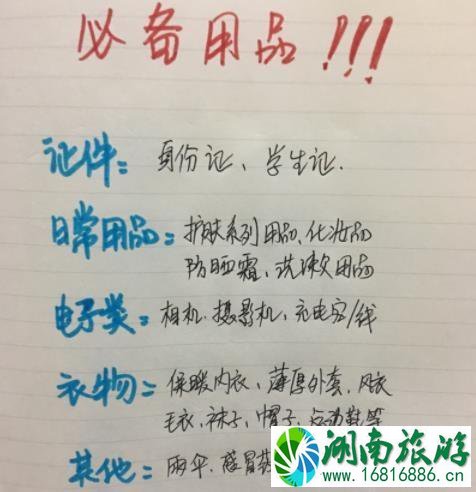 必备用品!!!
证件: 身份证、学生证.
日常用品: 护肤系列用品、化妆品
防晒霜、洗漱用品
电子类: 相机.摄影机、充电宝/线
衣物: 保暖内衣、薄厚外套、风衣
毛衣、袜子、帽子、运动鞋等
其他: 雨伞、感冒药
湖南旅游
www.16816886.cn